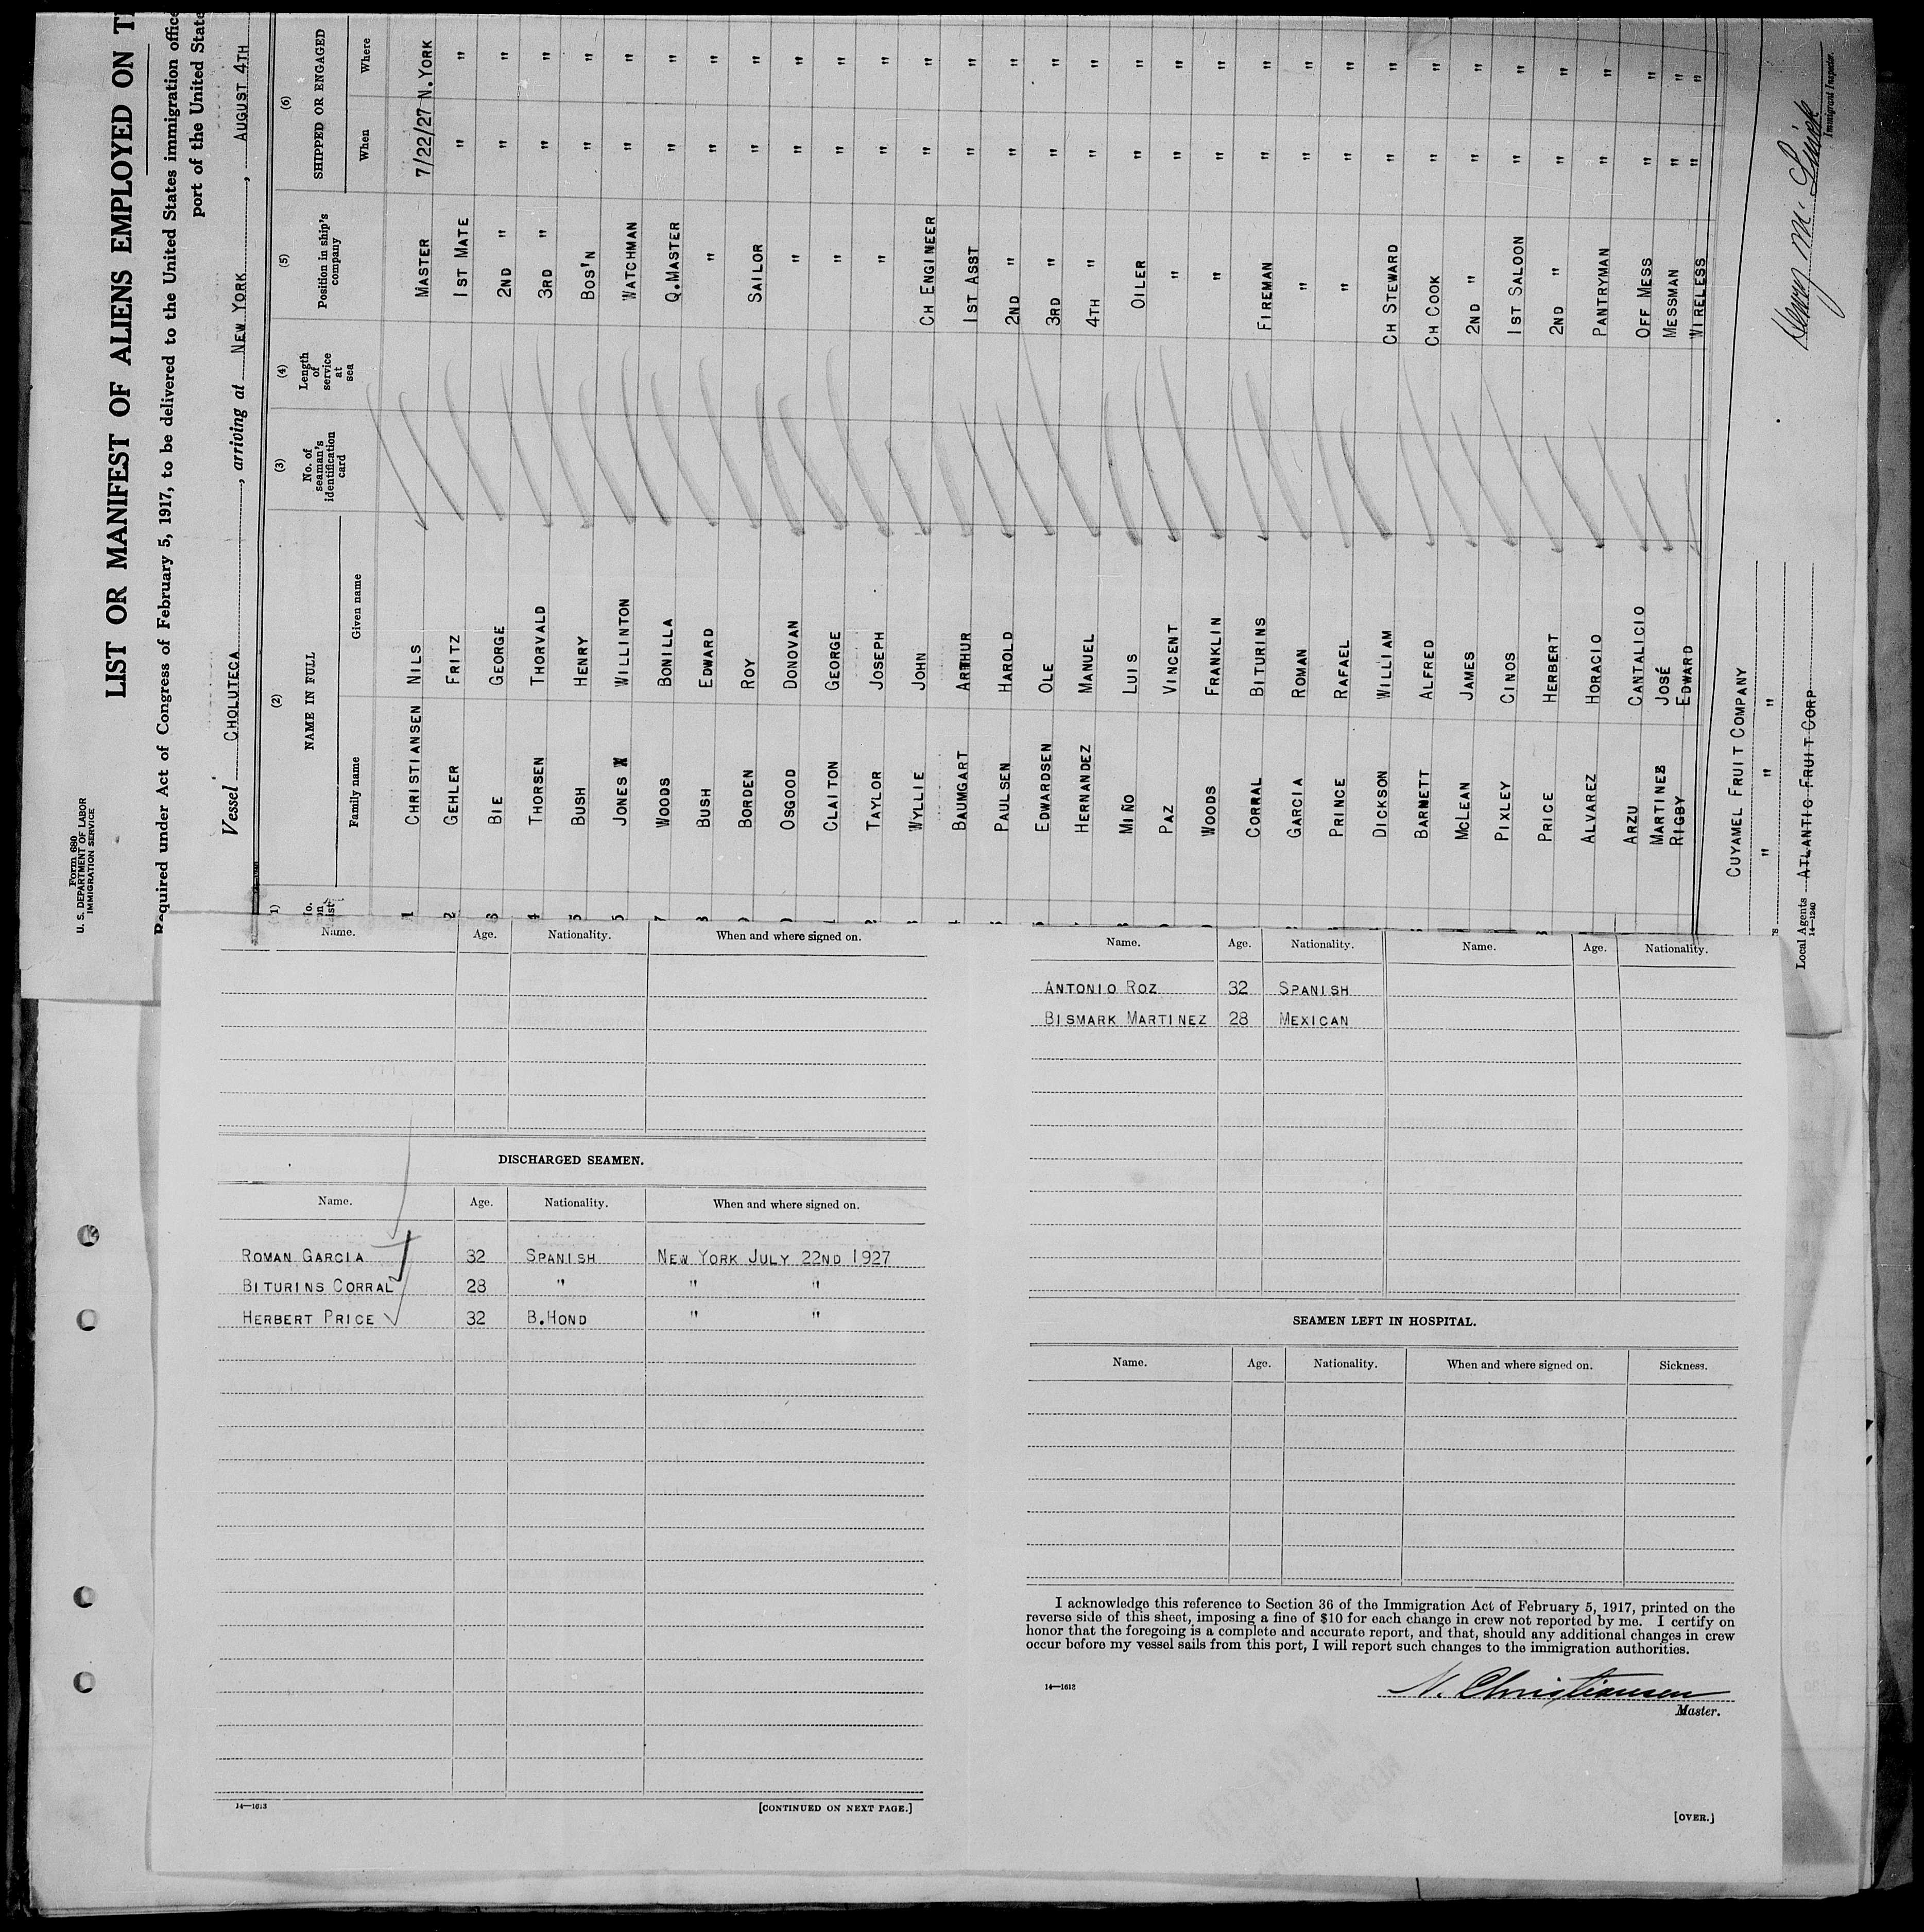 Form 680
U. S. DEPARTMENT OF LABOR
IMMIGRATION SERVICE
LIST OR MANIFEST OF ALIENS EMPLOYED ON
Required under Act of Congress of February 5, 1917, to be delivered to the United States immigration
port of the United
Vessel CHOLUTECA, arriving at NEW YORK, AUGUST 4TH
(2) (3) (4) (5) (6)
NAME IN FULL No. of seaman's identification card Length of service at sea Position in ship's company SHIPPED OR ENGAGED
Family name Given name When Where
1 CHRISTIANSEN NILS MASTER 7/22/27 N.YORK
2 GEHLER FRITZ 1ST MATE " "
3 BIE GEORGE 2ND " " "
4 THORSEN THORVALD 3RD " " "
5 BUSH HENRY BOS'N " "
JONES WILLINTON WATCHMAN " "
7 WOODS BONILLA Q.MASTER " "
BUSH EDWARD " " "
BORDEN ROY SAILOR " "
OSGOOD DONOVAN " " "
CLAITON GEORGE " " "
TAYLOR JOSEPH " " "
WYLLIE JOHN CH ENGINEER " "
BAUMGART ARTHUR 1ST ASST " "
PAULSEN HAROLD 2ND " " "
EDWARDSEN OLE 3RD " " "
HERNANDEZ MANUEL 4TH " " "
MIÑO LUIS OILER " "
PAZ VINCENT " " "
WOODS FRANKLIN " " "
CORRAL BITURINS FIREMAN " "
GARCIA ROMAN " " "
PRINCE RAFAEL " " "
DICKSON WILLIAM CH STEWARD " "
BARNETT ALFRED CH COOK " "
MCLEAN JAMES 2ND " " "
PIXLEY CINOS 1ST SALOON " "
PRICE HERBERT 2ND " " "
ALVAREZ HORACIO PANTRYMAN " "
ARZU CANTALICIO OFF MESS " "
MARTINEZ JOSÉ MESSMAN " "
RIGBY EDWARD WIRELESS " "
CUYAMEL FRUIT COMPANY
" " "
Local Agents ATLANTIC FRUIT CORP
14—1240
Immigrant Inspector.
Name. Age. Nationality. When and where signed on.
DISCHARGED SEAMEN.
Name. Age. Nationality. When and where signed on.
ROMAN GARCIA 32 SPANISH NEW YORK JULY 22ND 1927
BITURINS CORRAL 28 " " "
HERBERT PRICE 32 B.HOND " "
14—1613
[CONTINUED ON NEXT PAGE.]
Name. Age. Nationality. Name. Age. Nationality.
ANTONIO ROZ 32 SPANISH
BISMARK MARTINEZ 28 MEXICAN
SEAMEN LEFT IN HOSPITAL.
Name. Age. Nationality. When and where signed on. Sickness.
I acknowledge this reference to Section 36 of the Immigration Act of February 5, 1917, printed on the
reverse side of this sheet, imposing a fine of $10 for each change in crew not reported by me. I certify on
honor that the foregoing is a complete and accurate report, and that, should any additional changes in crew
occur before my vessel sails from this port, I will report such changes to the immigration authorities.
14—1613
N. Christiansen
Master.
[OVER.]